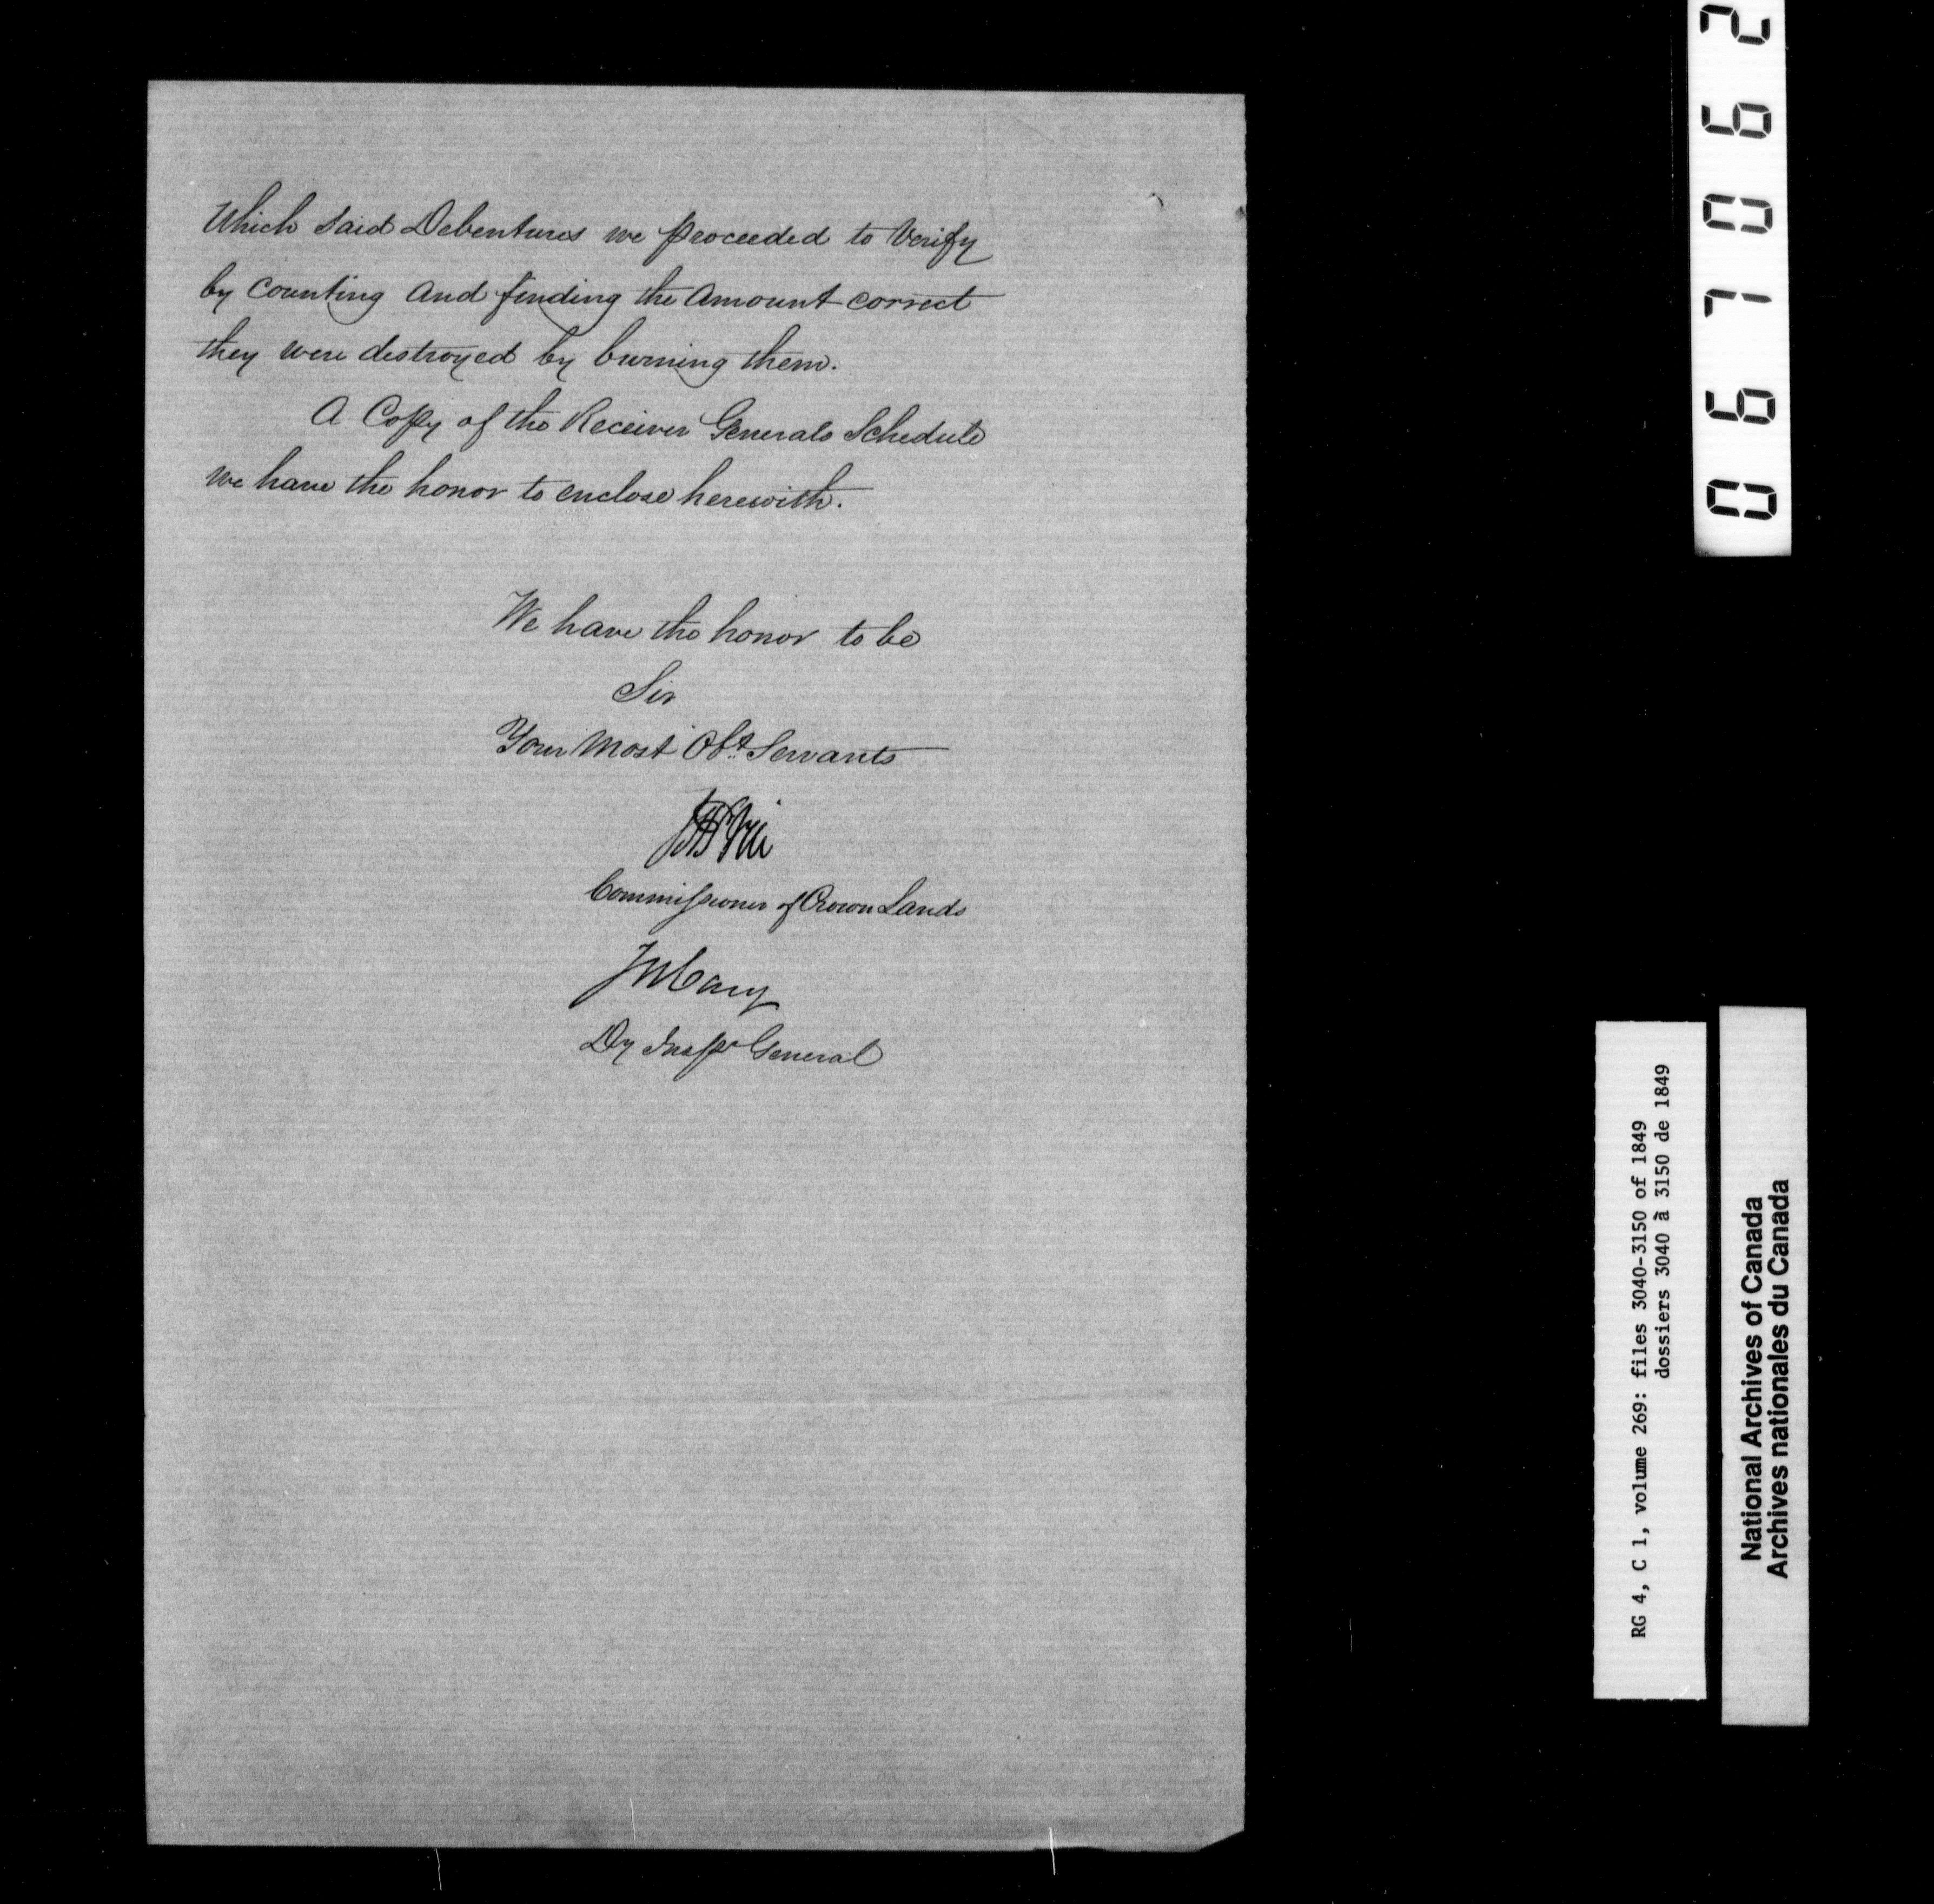 Which said Debentures we proceeded to Verify
by counting and finding the Amount correct
they were destroyed by burning them.
A Copy of the Receiver Generals Schedule
we have the honor to enclose herewith.
We have the honor to be
Sir
Your Most Obt. Servants
Commissioner of Crown Lands
Dy Inspr General
067062
RG 4, C 1, volume 269: files 3040-3150 of 1849
dossiers 3040 à 3150 de 1849
National Archives of Canada
Archives nationales du Canada